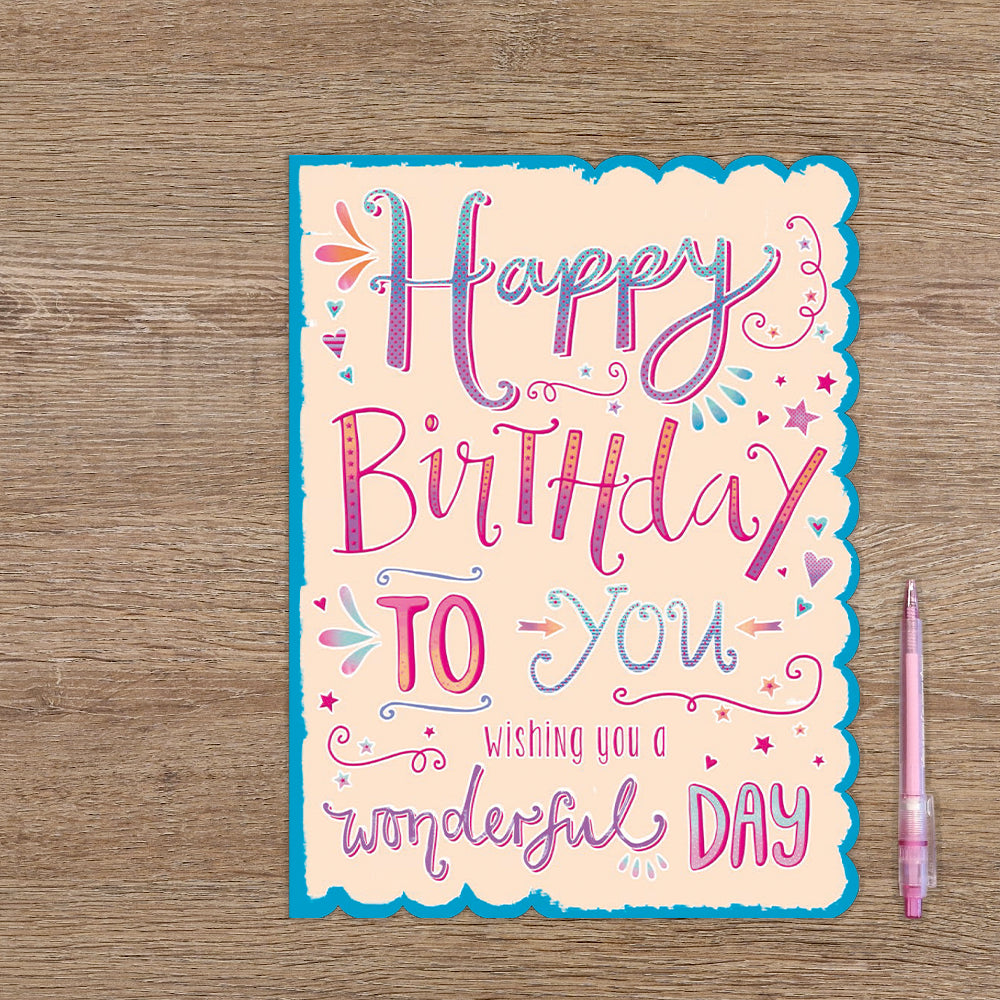 Happy
BirTHday
TO you
wishing you a
wonderful DAY